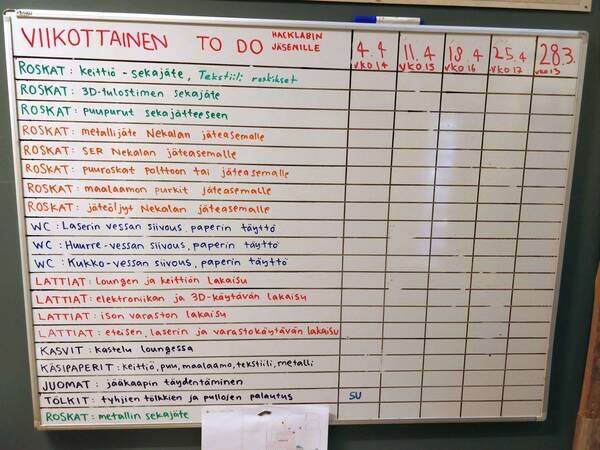 VIIKOTTAINEN TO DO HACKLABIN JÄSENILLE
4.4 11.4 18.4 25.4 28.3.
VKO 14 VKO 15 VKO 16 VKO 17 VKO 13
ROSKAT: keittiö - sekajäte, Tekstiili roskikset
ROSKAT: 3D-tulostimen sekajäte
ROSKAT: puupurut sekajätteeseen
ROSKAT: metallijäte Nekalan jäteasemalle
ROSKAT: SER Nekalan jäteasemalle
ROSKAT: puuroskat polttoon tai jäteasemalle
ROSKAT: maalaamon purkit jäteasemalle
ROSKAT: jäteöljyt Nekalan jäteasemalle
WC: Laserin vessan siivous, paperin täyttö
WC: Huurre-vessan siivous, paperin täyttö
WC: Kukko-vessan siivous, paperin täyttö
LATTIAT: Loungen ja keittiön lakaisu
LATTIAT: elektroniikan ja 3D-käytävän lakaisu
LATTIAT: ison varaston lakaisu
LATTIAT: eteisen, laserin ja varastokäytävän lakaisu
KASVIT: kastelu loungessa
KÄSIPAPERIT: keittiö, puu, maalaamo, tekstiili, metalli
JUOMAT: jääkaapin täydentäminen
TÖLKIT: tyhjien tölkkien ja pullojen palautus SU
ROSKAT: metallin sekajäte